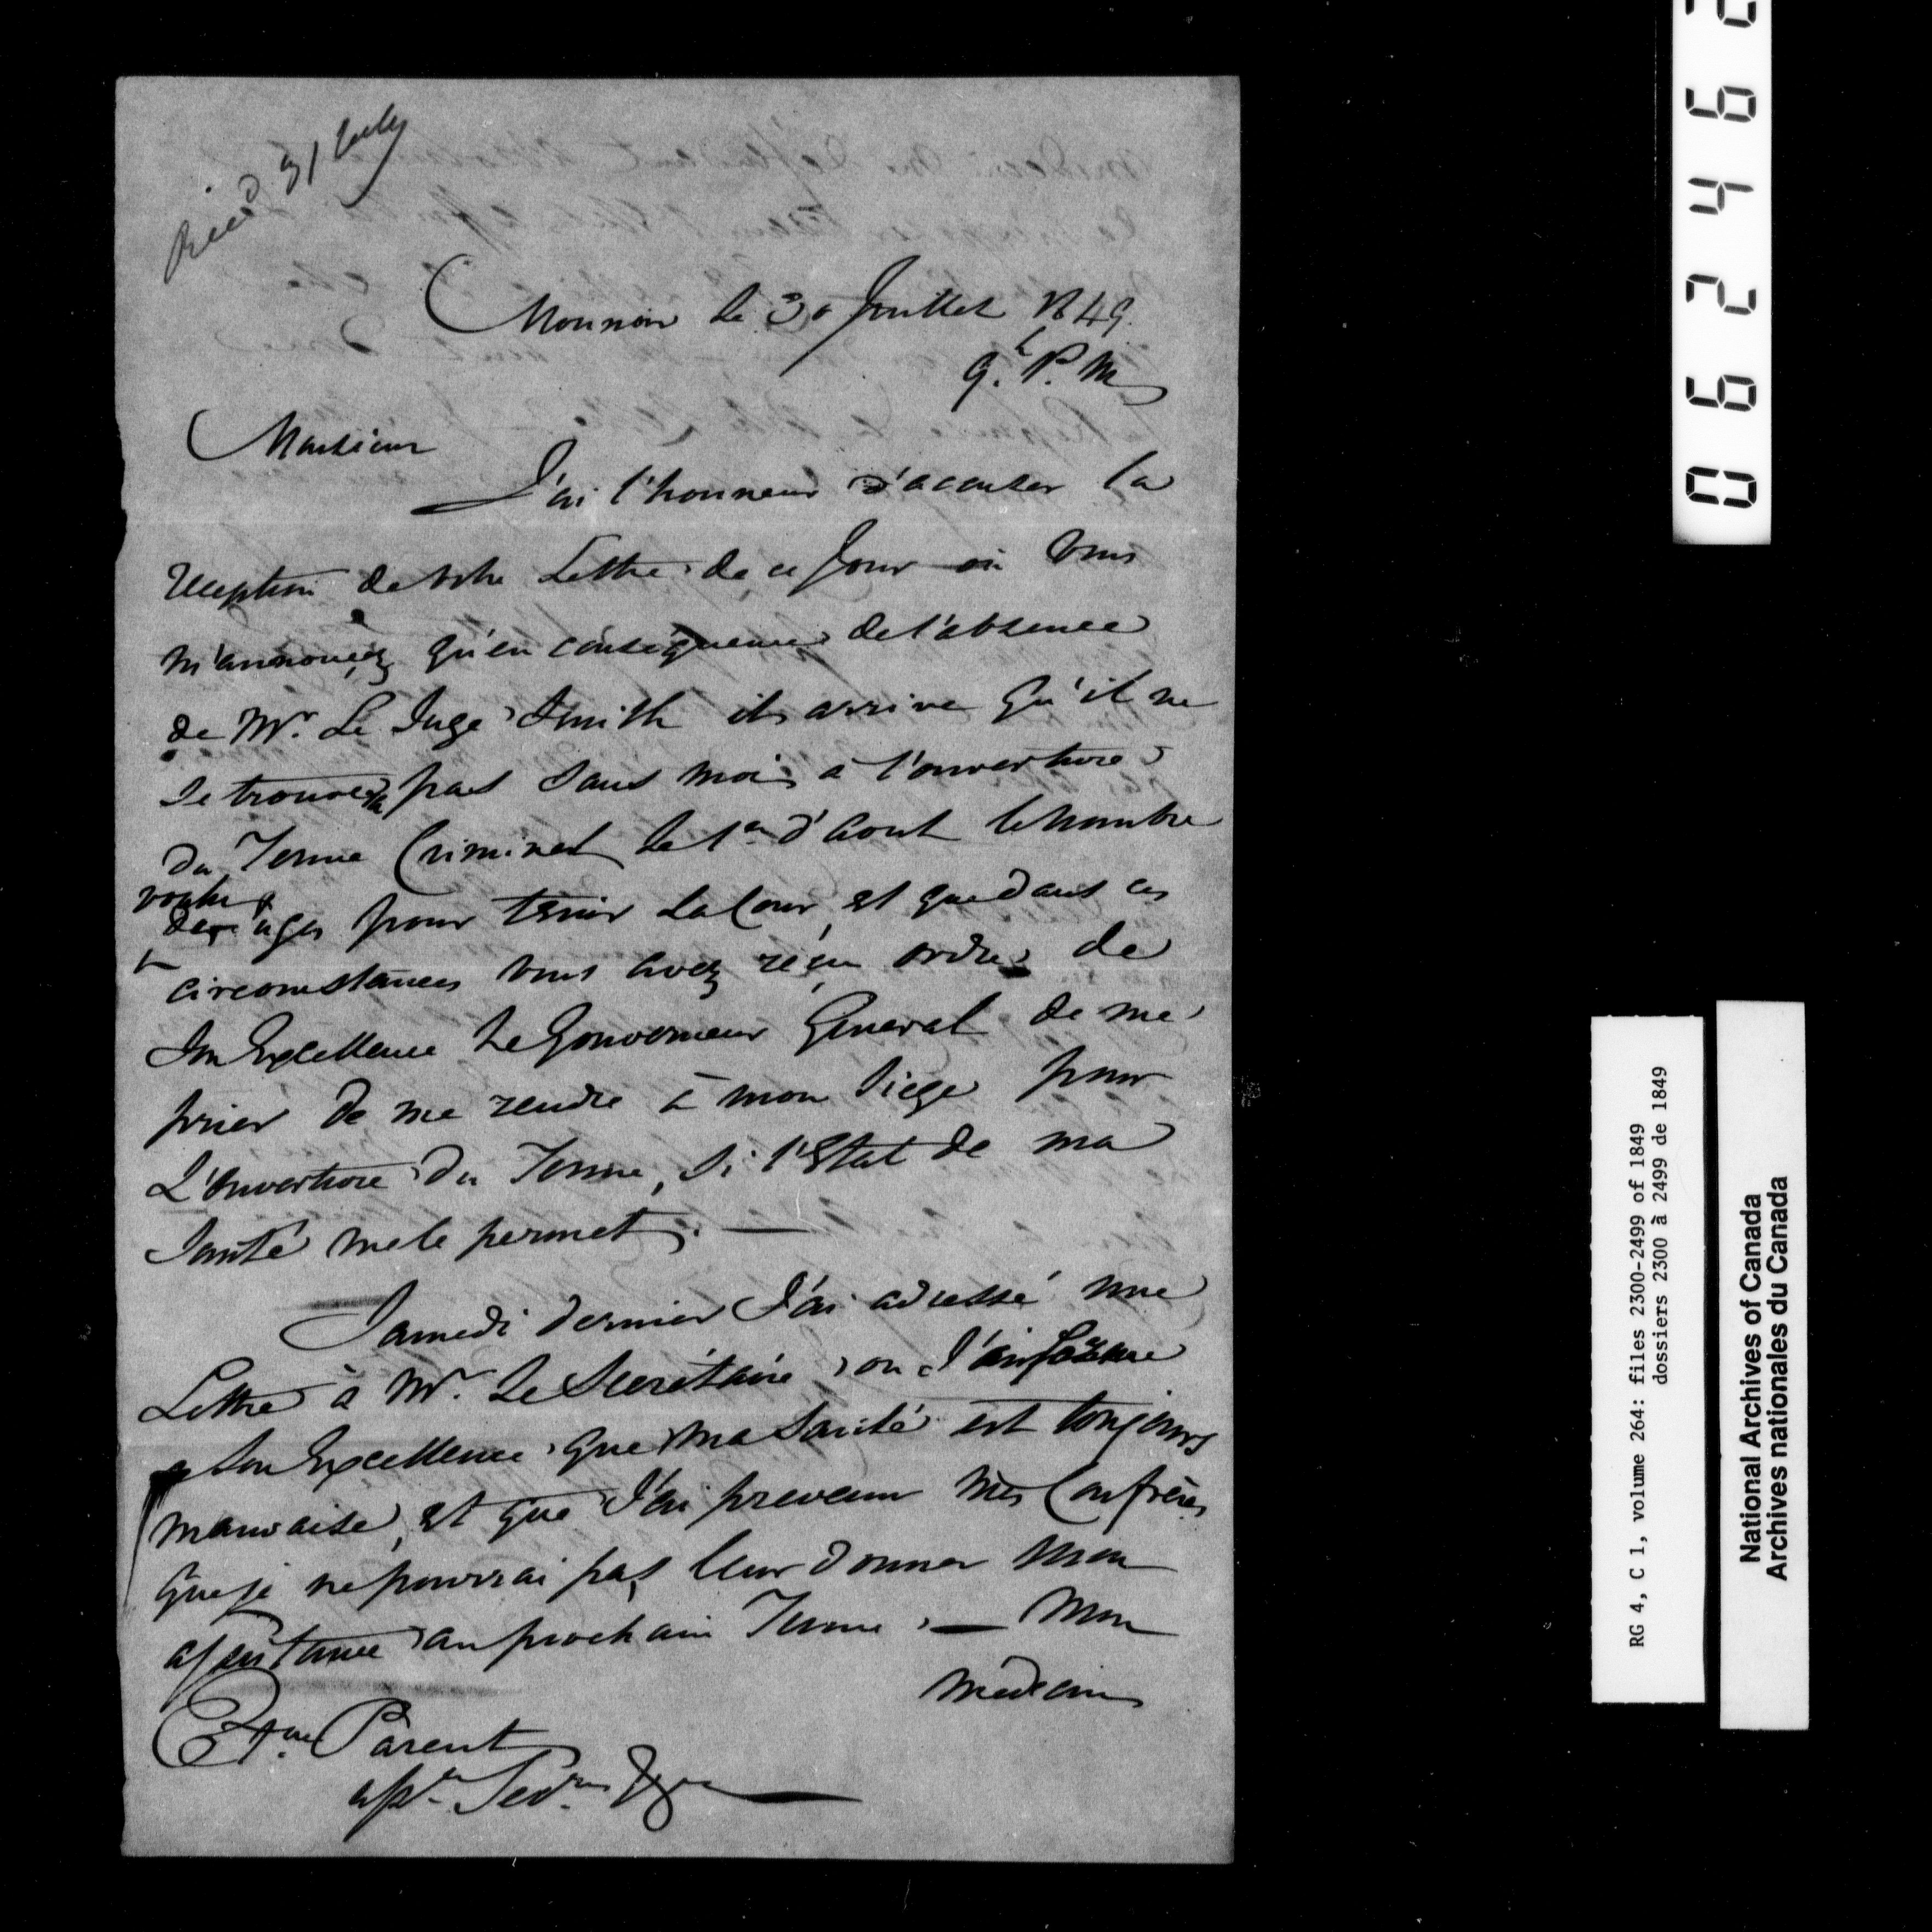 Recd 31 July
Monnoir le 30 Juillet 1849.
9.h P.M
Monsieur
J'ai l'honneur d'accuser la
reception de votre Lettre de ce Jour où vous
m'annoncez qu'en conséquence de l'absence
de Mr. Le Juge Smith il arrive qu'il ne
se trouvera pas sans moi à l'ouverture
du Terme Criminel le 1er d'Aout le nombre
voulu
de Juges pour tenir la Cour, et que dans ces
circonstances vous avez réçu ordre de
Son Excellence Le Gouverneur General de me
prier de me rendre à mon siege pour
L'ouverture du Terme, si l'Etat de ma
santé me le permet. —
Samedi dernier J'ai adressé une
Lettre à Mr. Le Secrétaire, ou J'informe
Son Excellence que ma santé est toujours
mauvaise, et que J'ai prevenu mes Confrères
que je ne pourrai pas leur donner mon
assistance au prochain Terme. — Mon
médecin
Etne Parent
asst. Secr.
0 6 2 4 6
RG 4, C 1, volume 264: files 2300-2499 of 1849
dossiers 2300 à 2499 de 1849
National Archives of Canada
Archives nationales du Canada